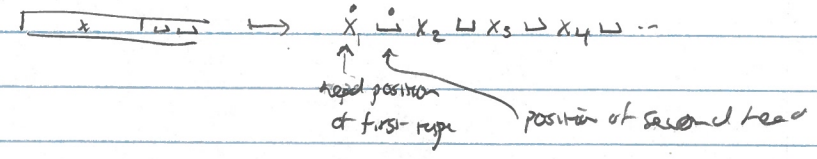 x ⊔ ⊔ ⟼ ẋ₁ ⊔̇ x₂ ⊔ x₃ ⊔ x₄ ⊔ ...
head position
of first tape
position of second head